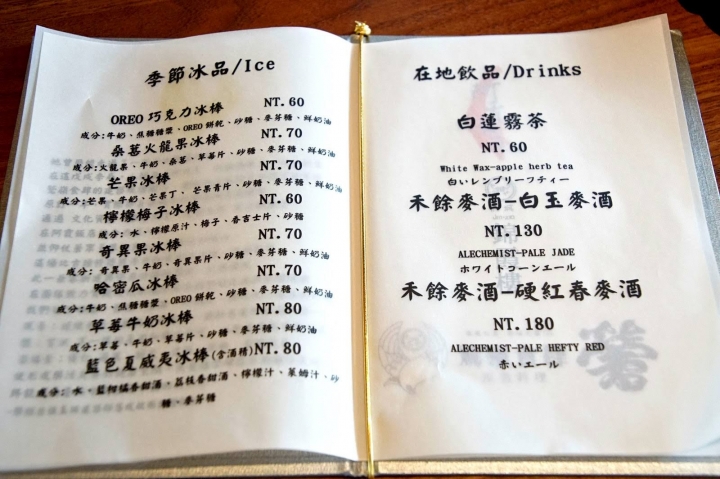 季節冰品/Ice
OREO 巧克力冰棒 NT. 60
成分:牛奶、焦糖糖漿、OREO 餅乾、砂糖、麥芽糖、鮮奶油
桑葚火龍果冰棒 NT. 70
成分:火龍果、牛奶、桑葚、草莓片、砂糖、麥芽糖、鮮奶油
芒果冰棒 NT. 70
成分:芒果、牛奶、芒果丁、芒果青片、砂糖、麥芽糖、鮮奶油
檸檬梅子冰棒 NT. 60
成分: 水、檸檬原汁、梅子、香吉士片、砂糖
奇異果冰棒 NT. 70
成分: 奇異果、牛奶、奇異果片、砂糖、麥芽糖、鮮奶油
哈密瓜冰棒 NT. 70
成分:牛奶、焦糖糖漿、OREO 餅乾、砂糖、麥芽糖、鮮奶油
草莓牛奶冰棒 NT. 80
成分:草莓、牛奶、草莓片、砂糖、麥芽糖、鮮奶油
藍色夏威夷冰棒(含酒精) NT. 80
成分:水、藍柑橘香甜酒、荔枝香甜酒、檸檬汁、萊姆汁、砂
糖、麥芽糖
在地飲品/Drinks
白蓮霧茶
NT. 60
White Wax-apple herb tea
白いレンブリーフティー
禾餘麥酒-白玉麥酒
NT. 130
ALECHEMIST-PALE JADE
ホワイトコーンエール
禾餘麥酒-硬紅春麥酒
NT. 180
ALECHEMIST-PALE HEFTY RED
赤いエール